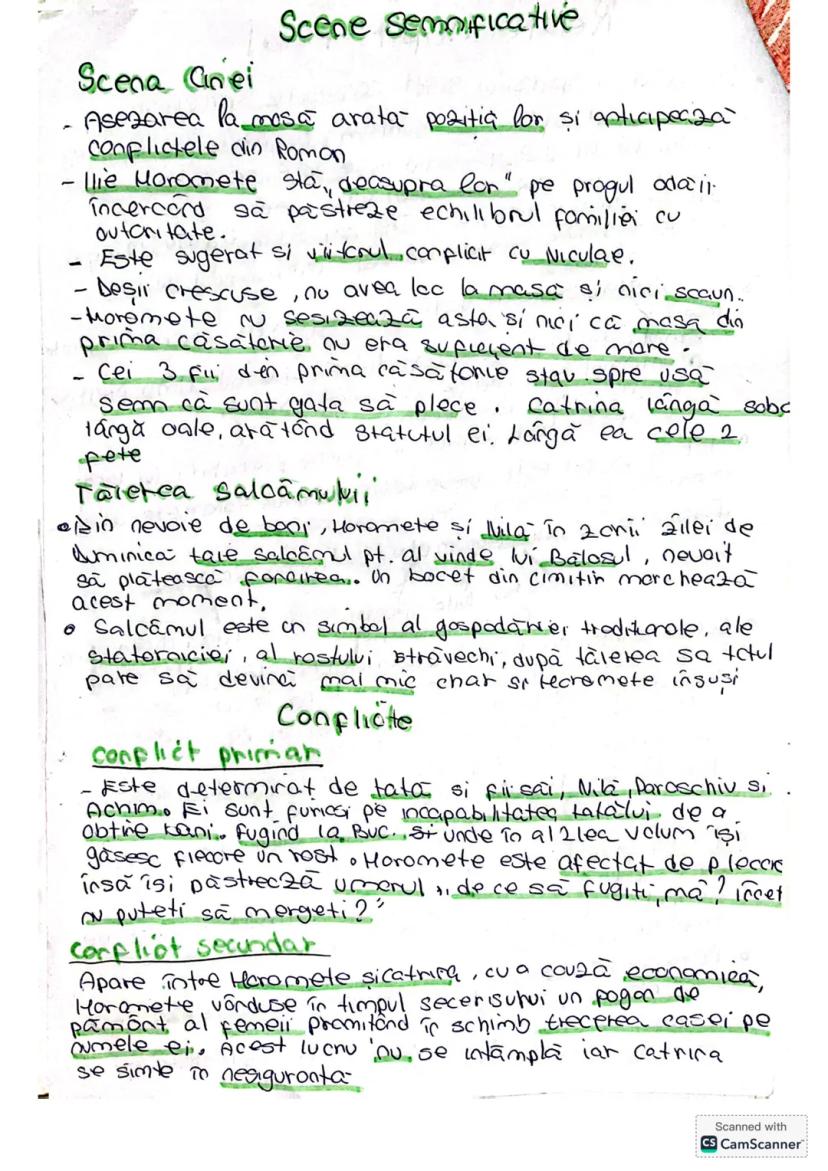 Scene semnificative
Scena Cinei
- Asezarea la masă arată poziția lor și anticipează
conflictele din Roman
- Ilie Moromete stă „deasupra lor" pe pragul odăii
încercând să păstreze echilibrul familiei cu
autoritate.
- Este sugerat si viitorul conflict cu Niculae.
- Desii crescuse, nu avea loc la masă și nici scaun.
- Moromete nu sesizează asta și nici că masa din
prima căsătorie nu era suficient de mare.
- Cei 3 fii din prima căsătorie stau spre usă
semn că sunt gata să plece. Catrina lângă sobă
lângă oale, arătând statutul ei. Lângă ea cele 2
fete
Tăierea salcâmului
• Din nevoie de bani, Moromete și Nilă în zorii zilei de
Duminică taie salcâmul pt. al vinde lui Bălosul, nevoit
să plătească fonciirea. Un bocet din cimitir marchează
acest moment.
• Salcâmul este un simbol al gospodăriei traditionale, ale
statorniciei, al rostului străvechi, după tăierea sa totul
pare să devină mai mic chiar si Moromete însuși
Conflicte
conflict primar
- Este determinat de tată si fii săi, Nilă, Paraschiv si
Achim. Ei sunt furiosi pe incapabilitatea tatălui de a
obtine bani. Fugind la Buc. si unde în al 2lea volum își
găsesc fiecare un rost. Moromete este afectat de plecare
însă își păstrează umorul „de ce să fugiti, mă? încet
nu puteti să mergeti?"
conflict secundar
Apare între Moromete și Catrina, cu o cauză economică,
Moromete vânduse în timpul secerisului un pogon de
pământ al femeii promitând în schimb trecerea casei pe
numele ei. Acest lucru nu se întâmplă iar Catrina
se simte în nesiguranta
Scanned with
CS CamScanner